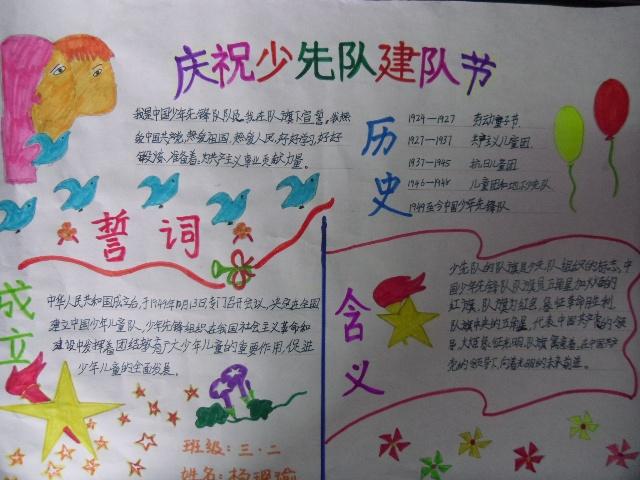 庆祝少先队建队节
我是中国少年先锋队队员,我在队旗下宣誓:我热
爱中国共产党,热爱祖国,热爱人民,好好学习,好好
锻炼,准备着:为共产主义事业贡献力量。
誓词
历史
1924-1927 劳动童子节
1927-1937 共产主义儿童团
1937-1945 抗日儿童团
1946-1948 儿童团和地下少先队
1949至今中国少年先锋队
成立
中华人民共和国成立后,于1949年10月13日专门召开会议,决定在全国
建立中国少年儿童队,少年先锋组织在我国社会主义革命和
建设中发挥着团结教育广大少年儿童的重要作用,促进
少年儿童的全面发展。
含义
少先队的队旗是少先队组织的标志,中
国少年先锋队队旗是五角星加火炬的
红旗,队旗为红色,象征革命胜利,
队旗中央的五角星,代表中国共产党的领
导,火炬象征光明,队旗寓意着,在中国共产
党的领导下,向着光明的未来前进。
班级:三.二
姓名:杨